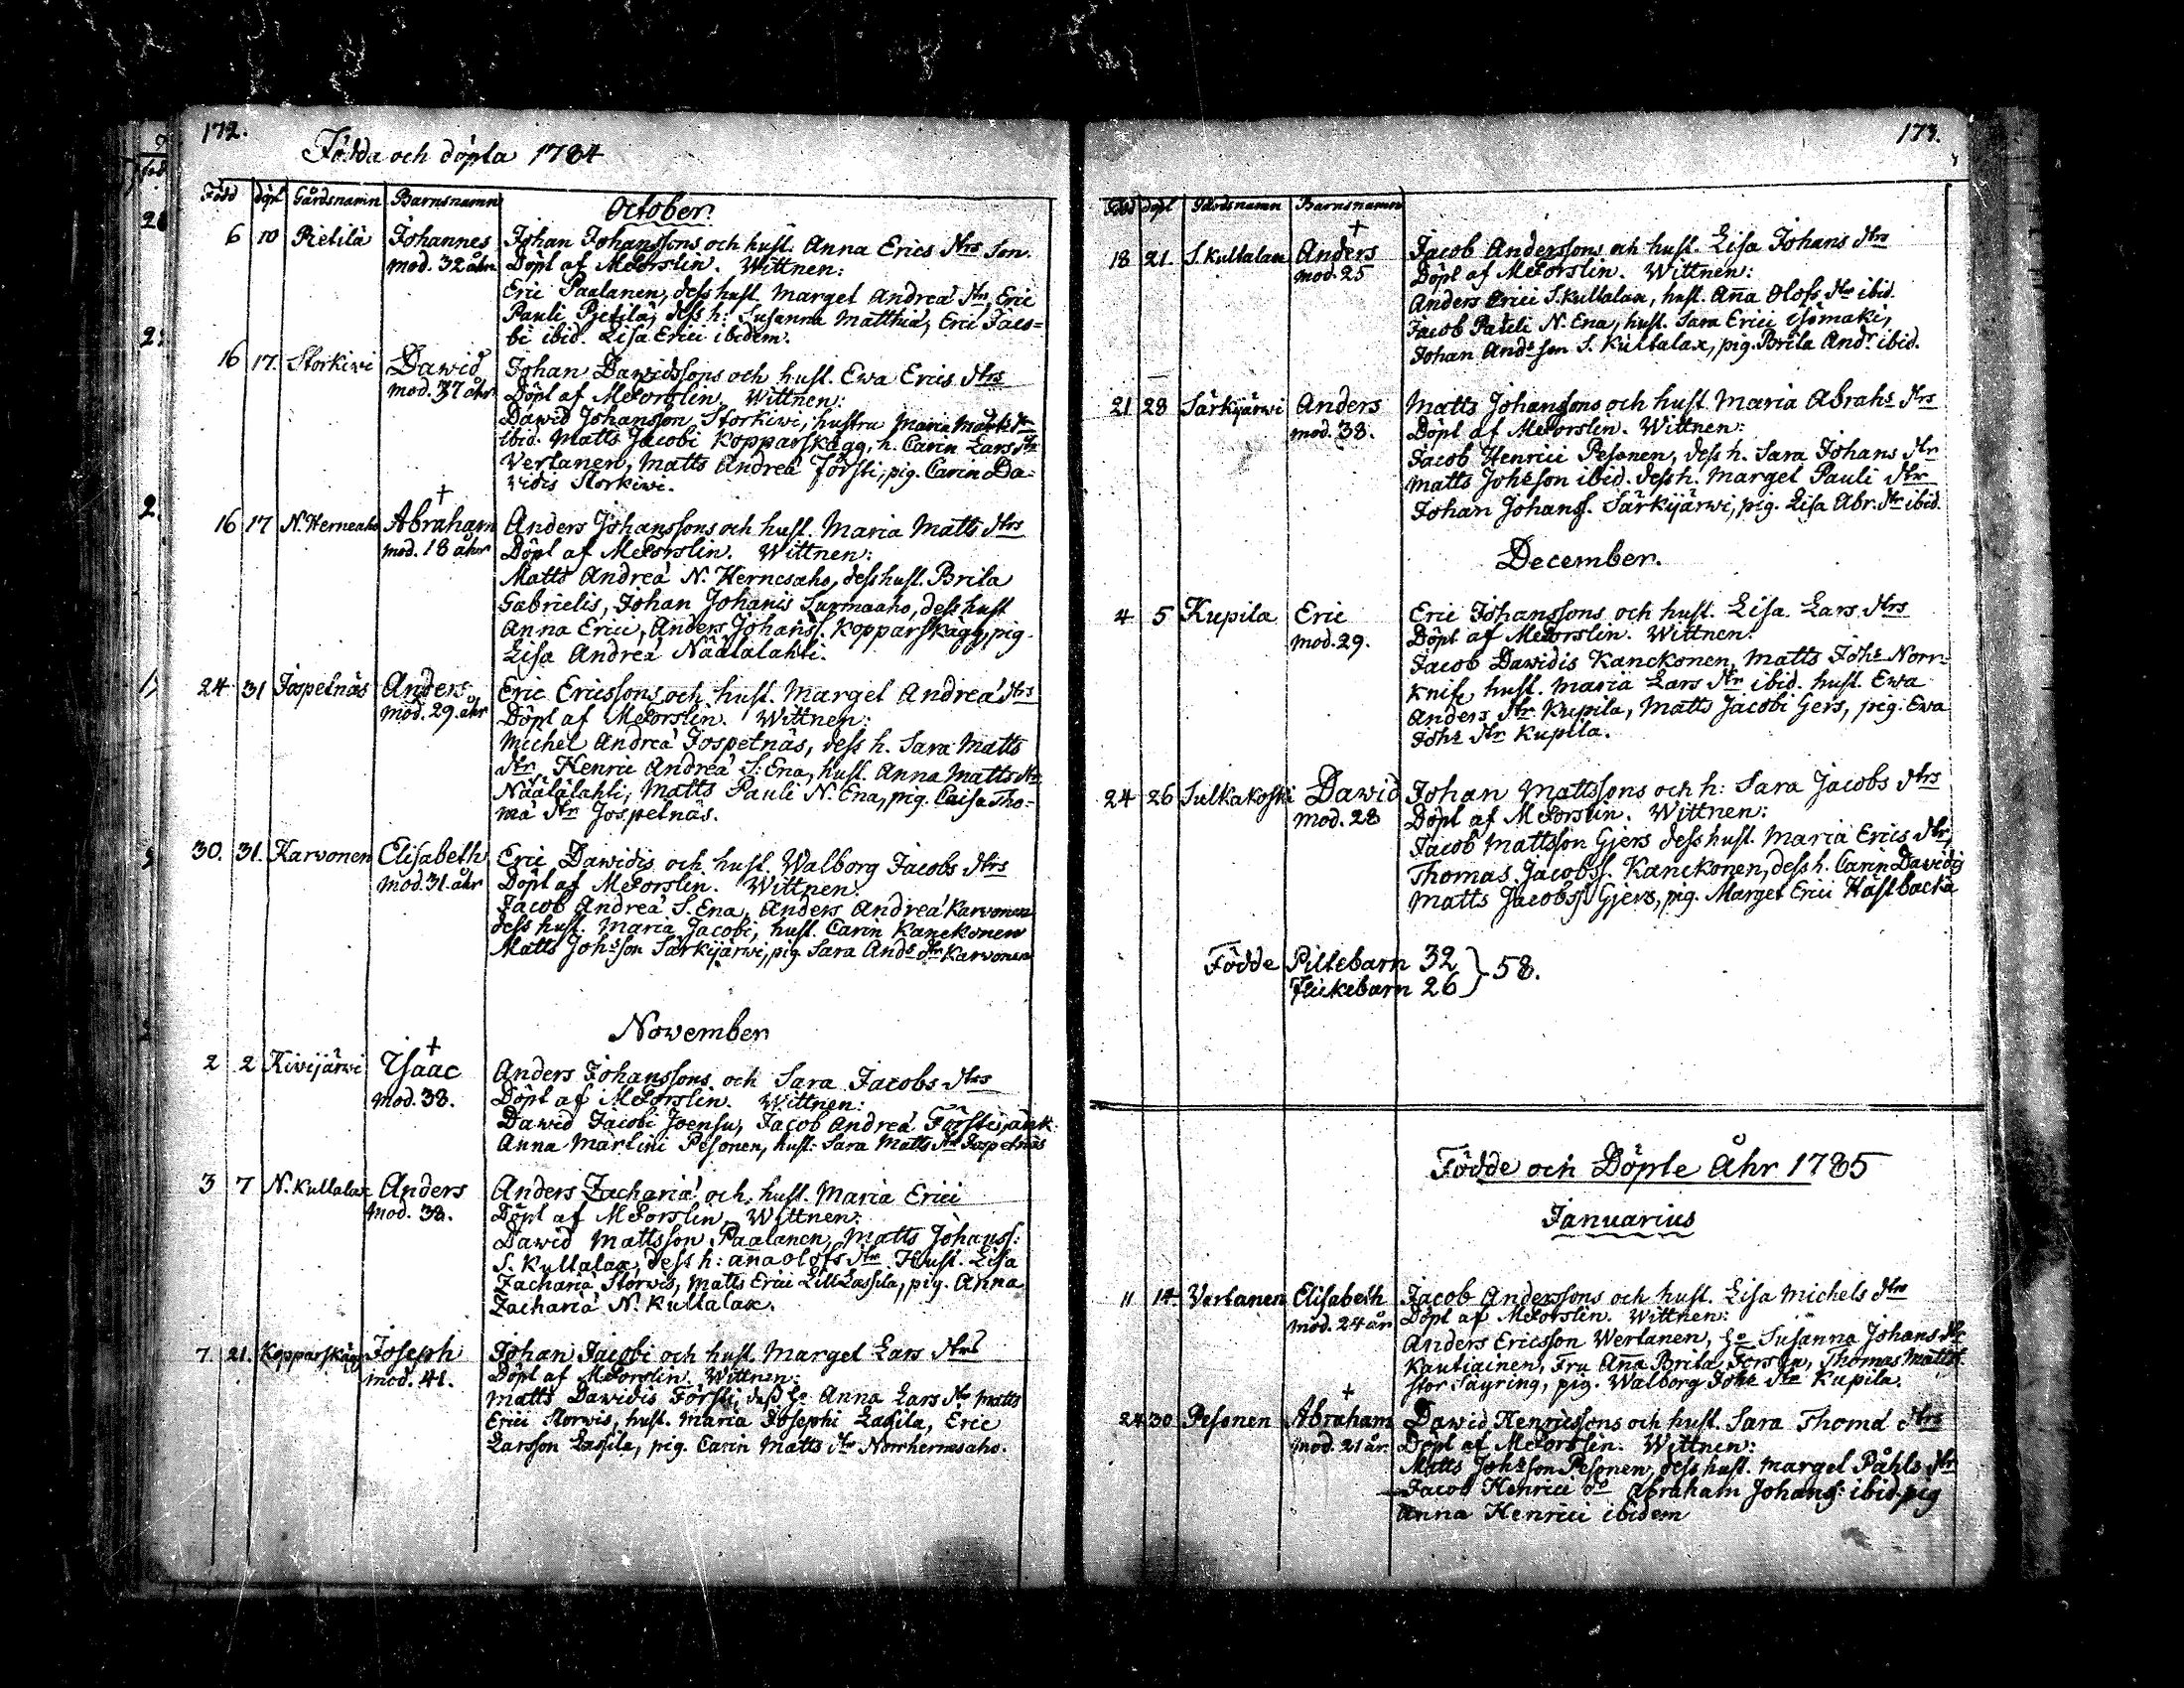 172.
Födda och döpta 1784
Född döpt Gårdsnamn Barnsnamn
October
6 10 Pietilä Johannes Johan Johanssons och hust. Anna Erics dtrs son.
mod. 32 åhr Döpt af MForslin. Wittnen:
Eric Paalanen, dess hust Marget Andreæ dtr, Eric
Pauli Pietilä, dess h: Susanna Matthiæ, Eric Jaco=
bi ibid. Lisa Erici ibidem.
16 17. Storkiwi Dawid Johan Dawidssons och hust. Ewa Erics dtrs
mod. 37 åhr Döpt af MForslin. Wittnen:
Dawid Johansson Storkiwi, hustru Maria Matts dr
ibid. Matts Jacobi Kopparskägg, h. Carin Lars dtr
Vertanen, Matts Andreæ Försti, pig. Carin Da=
vidis Storkiwi.
†
16 17 N. Herneaho Abraham Anders Johanssons och hust. Maria Matts dtrs
mod. 18 åhr Döpt af MForslin. Wittnen:
Matts Andreæ N. Hernesaho, dess hust. Brita
Gabrielis, Johan Johanis Surmaaho, dess hust
Anna Erici, Anders Johanss. Kopparskägg, pig.
Lisa Andreæ Näätälahti.
24 31 Jospetnäs Anders Eric Ericssons och hust. Marget Andreæ dtrs
mod. 29. åhr Döpt af MForslin. Wittnen:
Michel Andreæ Jospetnäs, dess h. Sara Matts
dtr, Henric Andreæ S. Ena, hust. Anna Matts dtr
Näätälahti, Matts Pauli N. Ena, pig. Caisa Tho=
mæ dtr Jospetnäs.
30. 31. Karvonen Elisabeth Eric Dawidis och hust. Walborg Jacobs dtrs
mod. 31. åhr Döpt af MForslin. Wittnen:
Jacob Andreæ S. Ena, Anders Andreæ Karvonen
dess hust. Maria Jacobi, hust. Carin Kanckonen
Matts Johsson Särkijärwi, pig. Sara Ands dtr Karvonen
November
†
2 2 Kivijärwi Isaac Anders Johanssons och Sara Jacobs dtrs
mod. 38. Döpt af MForslin. Wittnen:
Dawid Jacobi Joensu, Jacob Andreæ Försti, änk.
Anna Martini Pesonen, hust. Sara Matts dtr Jospetnäs
3 7 N. Kultalax Anders Anders Zachariæ och hust. Maria Erici
mod. 38. Döpt af MForslin. Wittnen:
Dawid Mattsson Paalanen, Matts Johanss:
S. Kultalax, dess h: Anna Olofs dtr. Hust. Lisa
Zachariæ Storvis, Matts Erici Lill Lassila, pig. Anna
Zachariæ N. Kultalax.
7. 21. Kopparskägg Joseph Johan Jacobi och hust. Marget Lars dtrs
mod. 41. Döpt af MForslin. Wittnen:
Matts Dawidis Försti, dess ho Anna Lars dtr Matts
Erici Storwis, hust. Maria Josephi Lassila, Eric
Larsson Lassila, pig. Carin Matts dtr Norrhernesaho.
173.
Född döpt Gårdsnamn Barnsnamn
†
18 21. S. Kultalax Anders Jacob Anderssons och hust. Lisa Johans dtrs
mod. 25 Döpt af MForslin. Wittnen:
Anders Erici S. Kultalax, hust. Anna Olofs dtr ibid.
Jacob Pauli N. Ena, hust. Sara Erici Isomaki,
Johan Ands son S. Kultalax, pig. Brita Andr. ibid.
21 28 Särkijärwi Anders Matts Johanssons och hust Maria Abrahs dtrs
mod. 38. Döpt af MForslin. Wittnen:
Jacob Henrici Pesonen, dess h. Sara Johans dtr
Matts Johsson ibid. dess h. Marget Pauli dtr
Johan Johanss. Särkijärwi, pig. Lisa Abr. dtr ibid.
December.
4 5 Kupila Eric Eric Johanssons och hust. Lisa Lars dtrs
mod. 29. Döpt af MForslin. Wittnen:
Jacob Dawidis Kanckonen, Matts Johs Norr=
knif, hust. Maria Lars dtr ibid. hust. Ewa
Anders dtr Kupila, Matts Jacobi Gers, pig. Ewa
Johs dtr Kupila.
24 26 Sulkakoski Dawid Johan Mattssons och h: Sara Jacobs dtrs
mod. 28 Döpt af MForslin. Wittnen:
Jacob Mattsson Gjers dess hust. Maria Erics dtr,
Thomas Jacobss. Kanckonen, dess h. Carin Dawidis
Matts Jacobss Gjers, pig. Marget Erici Hästbacka
Födde Piltebarn 32
Flickebarn 26 } 58.
Födde och Döpte Åhr 1785
Januarius
11 14 Vertanen Elisabeth Jacob Anderssons och hust. Lisa Michels dtrs
mod. 24 år Döpt af MForslin. Wittnen:
Anders Ericsson Wertanen, ho Susanna Johans dr
Kautiainen, Fru Anna Brita Forslin, Thomas Matts
Stor Säyring, pig. Walborg Johs dtr Kupila.
†
24 30 Pesonen Abraham Dawid Henricssons och hust. Sara Thomæ dtrs
mod. 21 år. Döpt af MForslin. Wittnen:
Matts Johsson Pesonen, dess hust. Marget Påhls dtr
Jacob Henrici do Abraham Johans: ibid. pig
Anna Henrici ibidem